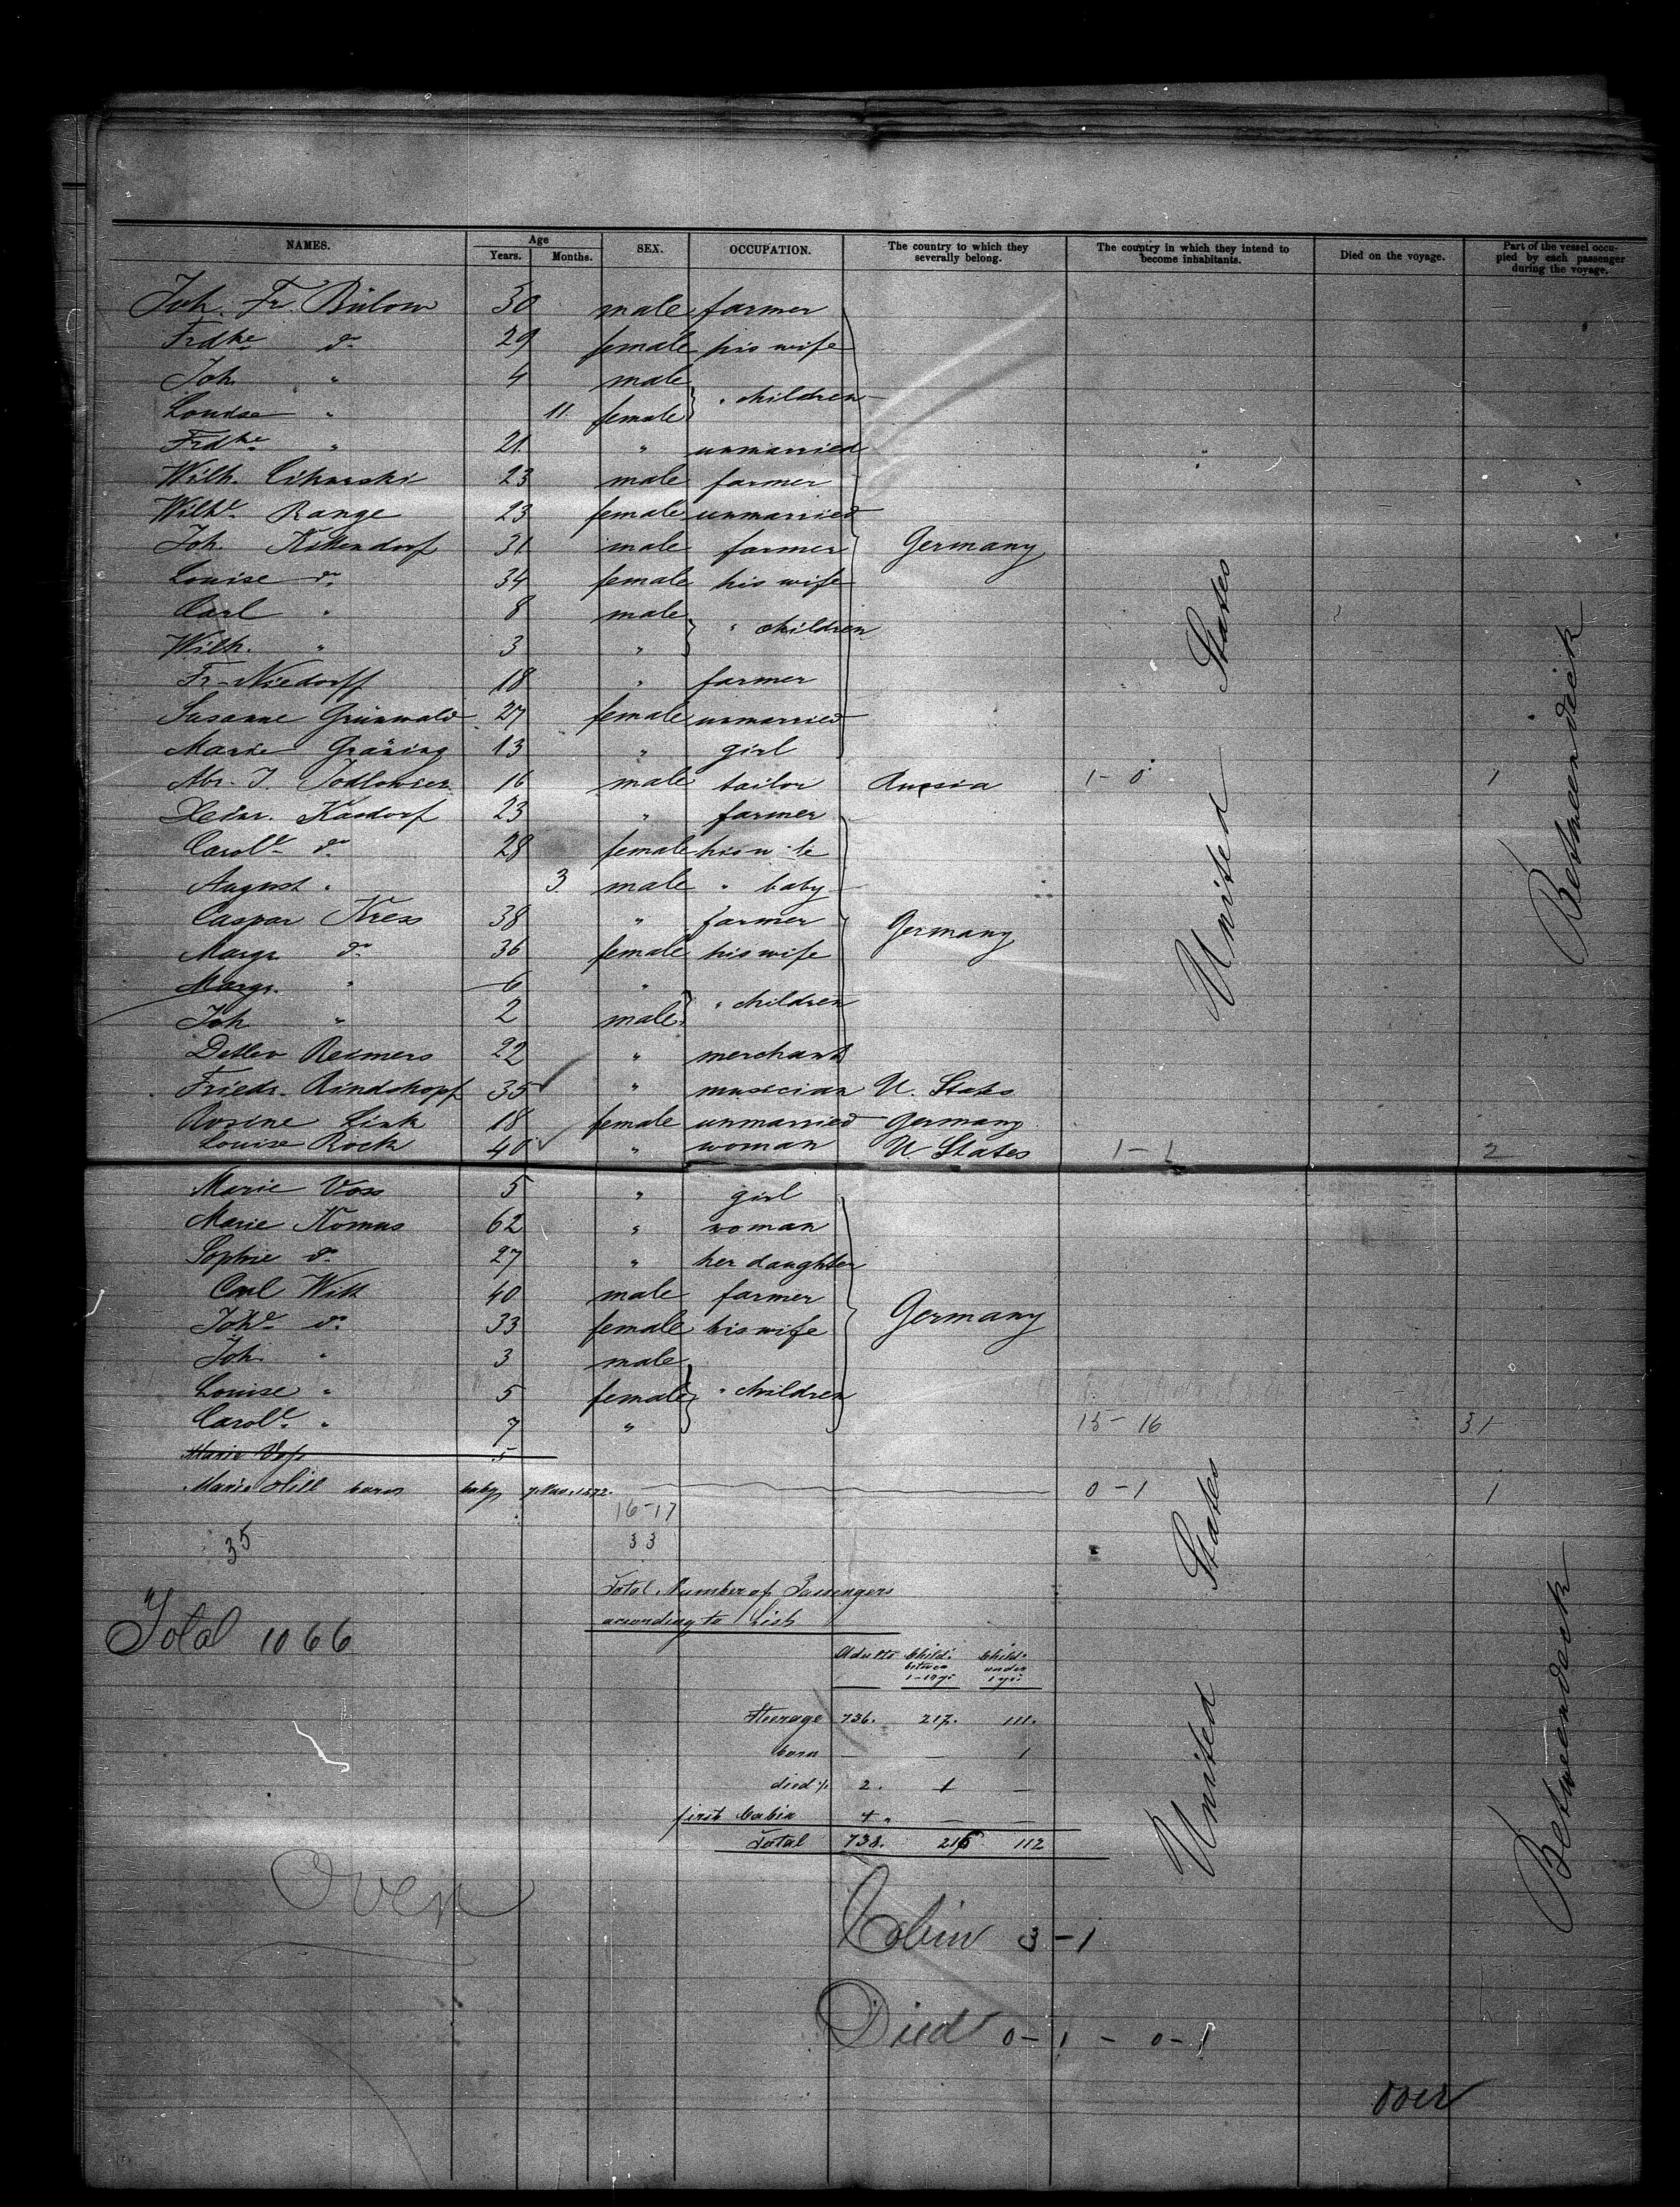 NAMES. Age Years. Months. SEX. OCCUPATION. The country to which they severally belong. The country in which they intend to become inhabitants. Died on the voyage. Part of the vessel occupied by each passenger during the voyage.
Joh. Fr. Bülow 30 male farmer
Frdke do 29 female his wife
Joh. " 4 male
" children
Louise " 11 female
Frdke " 21 " unmarried
Wilh. 23 male farmer
Wilhe Range 23 female unmarried
Joh. Kittendorf 31 male farmer Germany
Louise do 34 female his wife
Carl " 8 male
" children
Wilh. " 3 "
Fr. Niedorff 18 " farmer
Susanne Grünwald 27 female unmarried
Marie Gräning 13 " girl
Abr. J. 16 male tailor Russia 1-0 1
Heinr. Kasdorf 23 " farmer
Carole do 28 female his wife
August " 3 male " baby
Caspar Kress 38 " farmer Germany
Margr. do 36 female his wife
Margr. " 6 "
" children
Joh. " 2 male
Detlev Reimers 22 " merchant
Friedr. Rindskopf 35 " musician U. States
Rosine Link 18 female unmarried Germany
Louise Rock 40 " woman U States 1-1 2
Marie Voss 5 " girl
Marie Komus 62 " woman
Sophie do 27 " her daughter
Carl Witt 40 male farmer Germany
Johe do 33 female his wife
Joh. " 3 male
Louise " 5 female " children
Carole " 7 " 15-16 31
Marie Voss 5
Marie Hill born baby 7. Nov. 1872. 0-1 1
16-17
35 33
United States
Betweendeck
United States
Betweendeck
Total Number of Passengers
according to List
Total 1066
Adults Child. between 1-10 yr. Child. under 1 yr.
Steerage 736. 217. 111.
born — — 1
died % 2. 1 —
first Cabin 4 " — —
Total 738. 216 112
Over
Cabin 3-1
Died 0-1-0-1
over